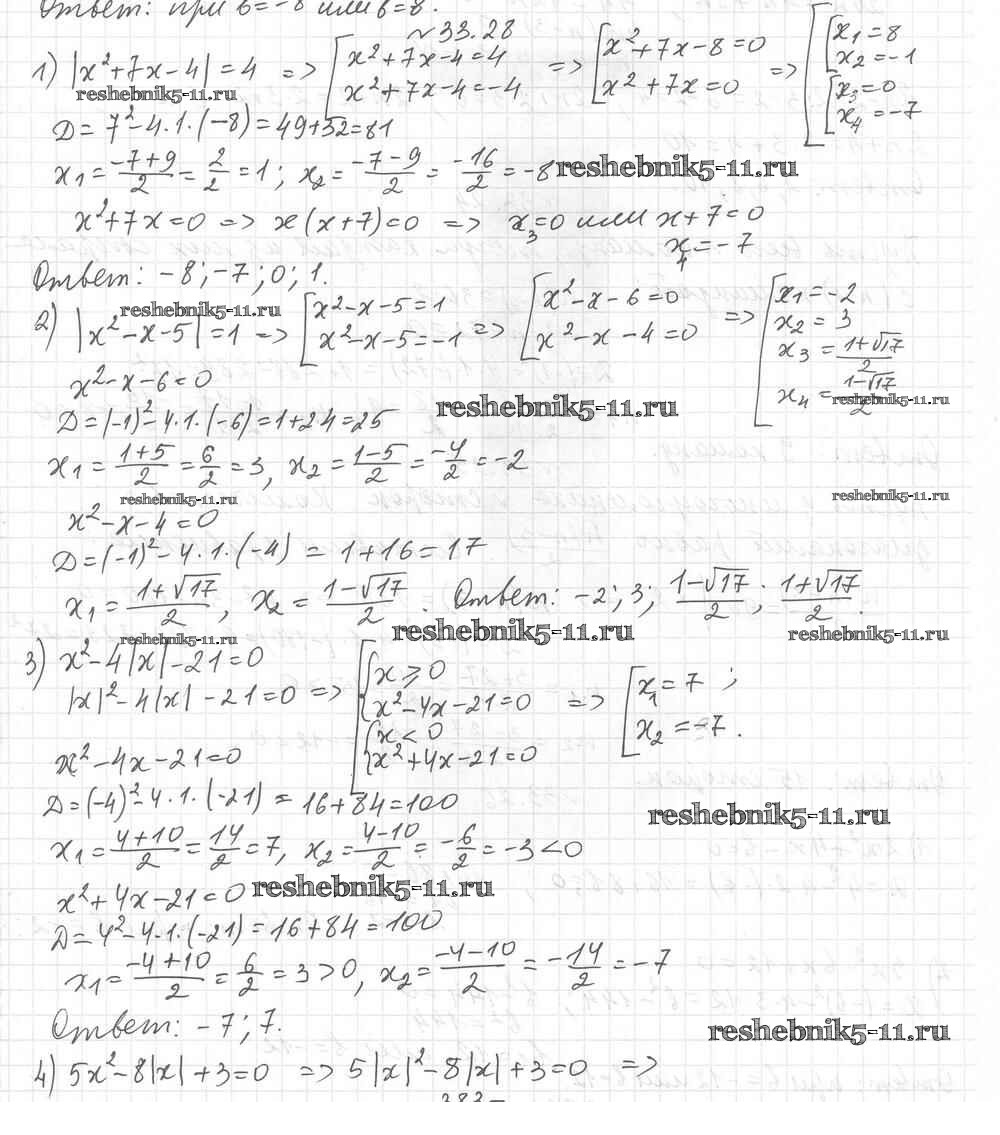 Ответ: при b=-8 или b=8.
№33.28
1) |x²+7x-4|=4 => [x²+7x-4=4 => [x²+7x-8=0 => [x₁=8
x²+7x-4=-4 x²+7x=0 x₂=-1
reshebnik5-11.ru x₃=0
x₄=-7
D=7²-4·1·(-8)=49+32=81
x₁=(-7+9)/2=2/2=1; x₂=(-7-9)/2=-16/2=-8 reshebnik5-11.ru
x²+7x=0 => x(x+7)=0 => x₃=0 или x+7=0
x₄=-7
Ответ: -8;-7;0;1.
reshebnik5-11.ru
2) |x²-x-5|=1 => [x²-x-5=1 => [x²-x-6=0 => [x₁=-2
x²-x-5=-1 x²-x-4=0 x₂=3
x₃=(1+√17)/2
x₄=(1-√17)/2
reshebnik5-11.ru
x²-x-6=0
reshebnik5-11.ru
D=(-1)²-4·1·(-6)=1+24=25
x₁=(1+5)/2=6/2=3, x₂=(1-5)/2=-4/2=-2
reshebnik5-11.ru reshebnik5-11.ru
x²-x-4=0
D=(-1)²-4·1·(-4)=1+16=17
x₁=(1+√17)/2, x₂=(1-√17)/2. Ответ: -2; 3; (1-√17)/2; (1+√17)/2.
reshebnik5-11.ru reshebnik5-11.ru reshebnik5-11.ru
3) x²-4|x|-21=0
|x|²-4|x|-21=0 => [{x⩾0 => [x₁=7;
x²-4x-21=0 x₂=-7.
{x<0
x²+4x-21=0
x²-4x-21=0
D=(-4)²-4·1·(-21)=16+84=100
reshebnik5-11.ru
x₁=(4+10)/2=14/2=7, x₂=(4-10)/2=-6/2=-3<0
x²+4x-21=0 reshebnik5-11.ru
D=4²-4·1·(-21)=16+84=100
x₁=(-4+10)/2=6/2=3>0, x₂=(-4-10)/2=-14/2=-7
Ответ: -7; 7.
reshebnik5-11.ru
4) 5x²-8|x|+3=0 => 5|x|²-8|x|+3=0 =>